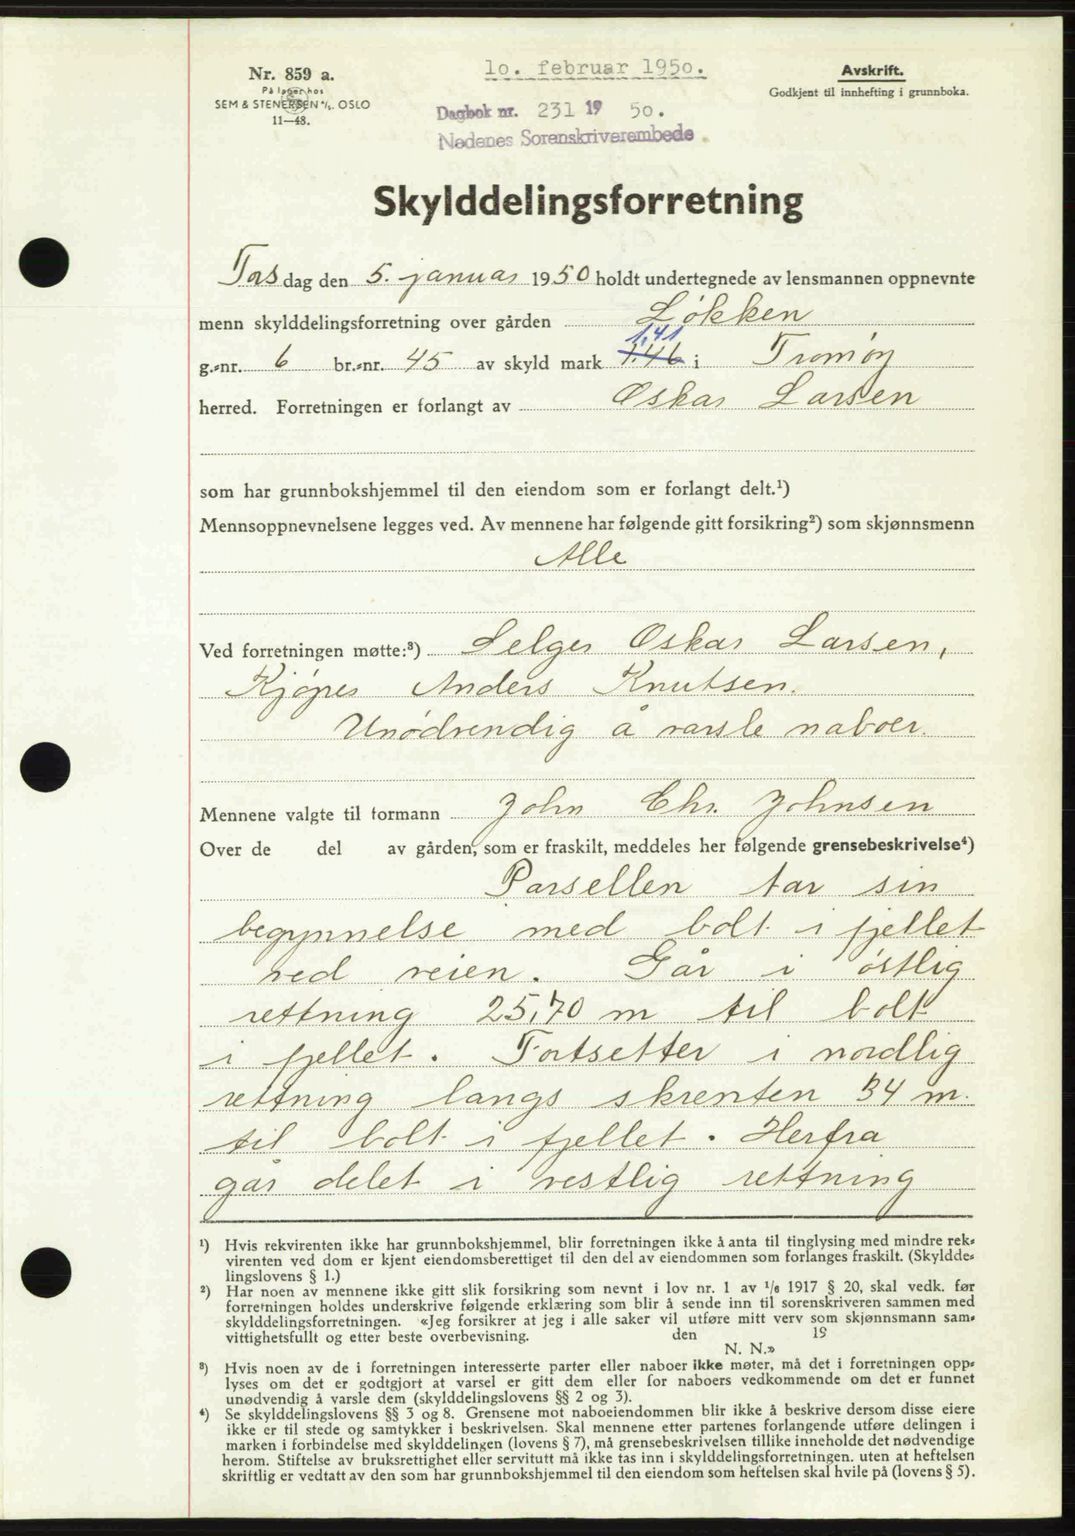 Nr. 859 a.
På lager hos
SEM & STENERSEN A/S. OSLO
11—48.
10. februar 1950.
Dagbok nr. 231 19 50.
Nedenes Sorenskriverembede.
Avskrift.
Godkjent til innhefting i grunnboka.
Skylddelingsforretning
Torsdag den 5. januar 1950 holdt undertegnede av lensmannen oppnevnte
menn skylddelingsforretning over gården Løkken
1,41
g.-nr. 6 br.-nr. 45 av skyld mark 1.46 i Tromøy
herred. Forretningen er forlangt av Oskar Larsen
som har grunnbokshjemmel til den eiendom som er forlangt delt.¹)
Mennsoppnevnelsene legges ved. Av mennene har følgende gitt forsikring²) som skjønnsmenn
Alle
Ved forretningen møtte:³) Selger Oskar Larsen,
Kjøper Anders Knutsen.
Unødvendig å varsle naboer.
Mennene valgte til formann John Chr. Johnsen
Over de del av gården, som er fraskilt, meddeles her følgende grensebeskrivelse⁴)
Parsellen tar sin
begynnelse med bolt i fjellet
ved veien. Går i østlig
rettning 25,70 m til bolt
i fjellet. Fortsetter i nordlig
rettning langs skrenten 34 m.
til bolt i fjellet. Herfra
går delet i vestlig rettning
¹) Hvis rekvirenten ikke har grunnbokshjemmel, blir forretningen ikke å anta til tinglysing med mindre rek-
virenten ved dom er kjent eiendomsberettiget til den del av eiendommen som forlanges fraskilt. (Skyldde-
lingslovens § 1.)
²) Har noen av mennene ikke gitt slik forsikring som nevnt i lov nr. 1 av 1/6 1917 § 20, skal vedk. før
forretningen holdes underskrive følgende erklæring som blir å sende inn til sorenskriveren sammen med
skylddelingsforretningen. «Jeg forsikrer at jeg i alle saker vil utføre mitt verv som skjønnsmann sam-
vittighetsfullt og etter beste overbevisning. den 19
N. N.»
³) Hvis noen av de i forretningen interesserte parter eller naboer ikke møter, må det i forretningen opp-
lyses om det er godtgjort at varsel er gitt dem eller for naboers vedkommende om det er funnet
unødvendig å varsle dem (skylddelingslovens §§ 2 og 3).
⁴) Se skylddelingslovens §§ 3 og 8. Grensene mot naboeiendommen blir ikke å beskrive dersom disse eiere
ikke er til stede og samtykker i beskrivelsen. Skal mennene etter partenes forlangende utføre delingen i
marken i forbindelse med skylddelingen (lovens § 7), må grensebeskrivelsen tillike inneholde det nødvendige
herom. Stiftelse av bruksrettighet eller servitutt må ikke tas inn i skylddelingsforretningen. uten at heftelsen
skriftlig er vedtatt av den som har grunnbokshjemmel til den eiendom som heftelsen skal hvile på (lovens § 5).